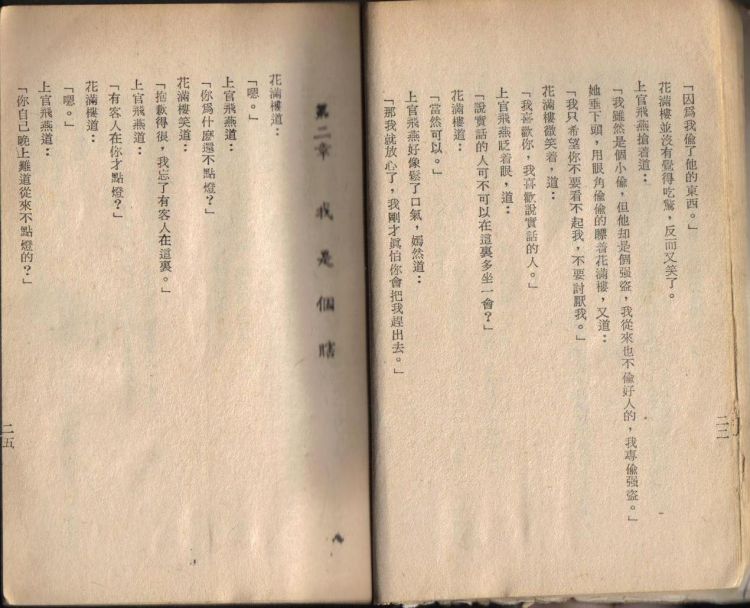 「因爲我偷了他的東西。」
花滿樓並沒有覺得吃驚，反而又笑了。
上官飛燕搶着道：
「我雖然是個小偷，但他却是個强盜，我從來也不偷好人的，我專偷强盜。」
她垂下頭，用眼角偷偷的瞟着花滿樓，又道：
「我只希望你不要看不起我，不要討厭我。」
花滿樓微笑着，道：
「我喜歡你，我喜歡說實話的人。」
上官飛燕眨着眼，道：
「說實話的人可不可以在這裏多坐一會？」
花滿樓道：
「當然可以。」
上官飛燕好像鬆了口氣，嫣然道：
「那我就放心了，我剛才眞怕你會把我趕出去。」
二二
第二章 我是個瞎
花滿樓道：
「嗯。」
上官飛燕道：
「你爲什麼還不點燈？」
花滿樓笑道：
「抱歉得很，我忘了有客人在這裏。」
上官飛燕道：
「有客人在你才點燈？」
花滿樓道：
「嗯。」
上官飛燕道：
「你自己晚上難道從來不點燈的？」
二五